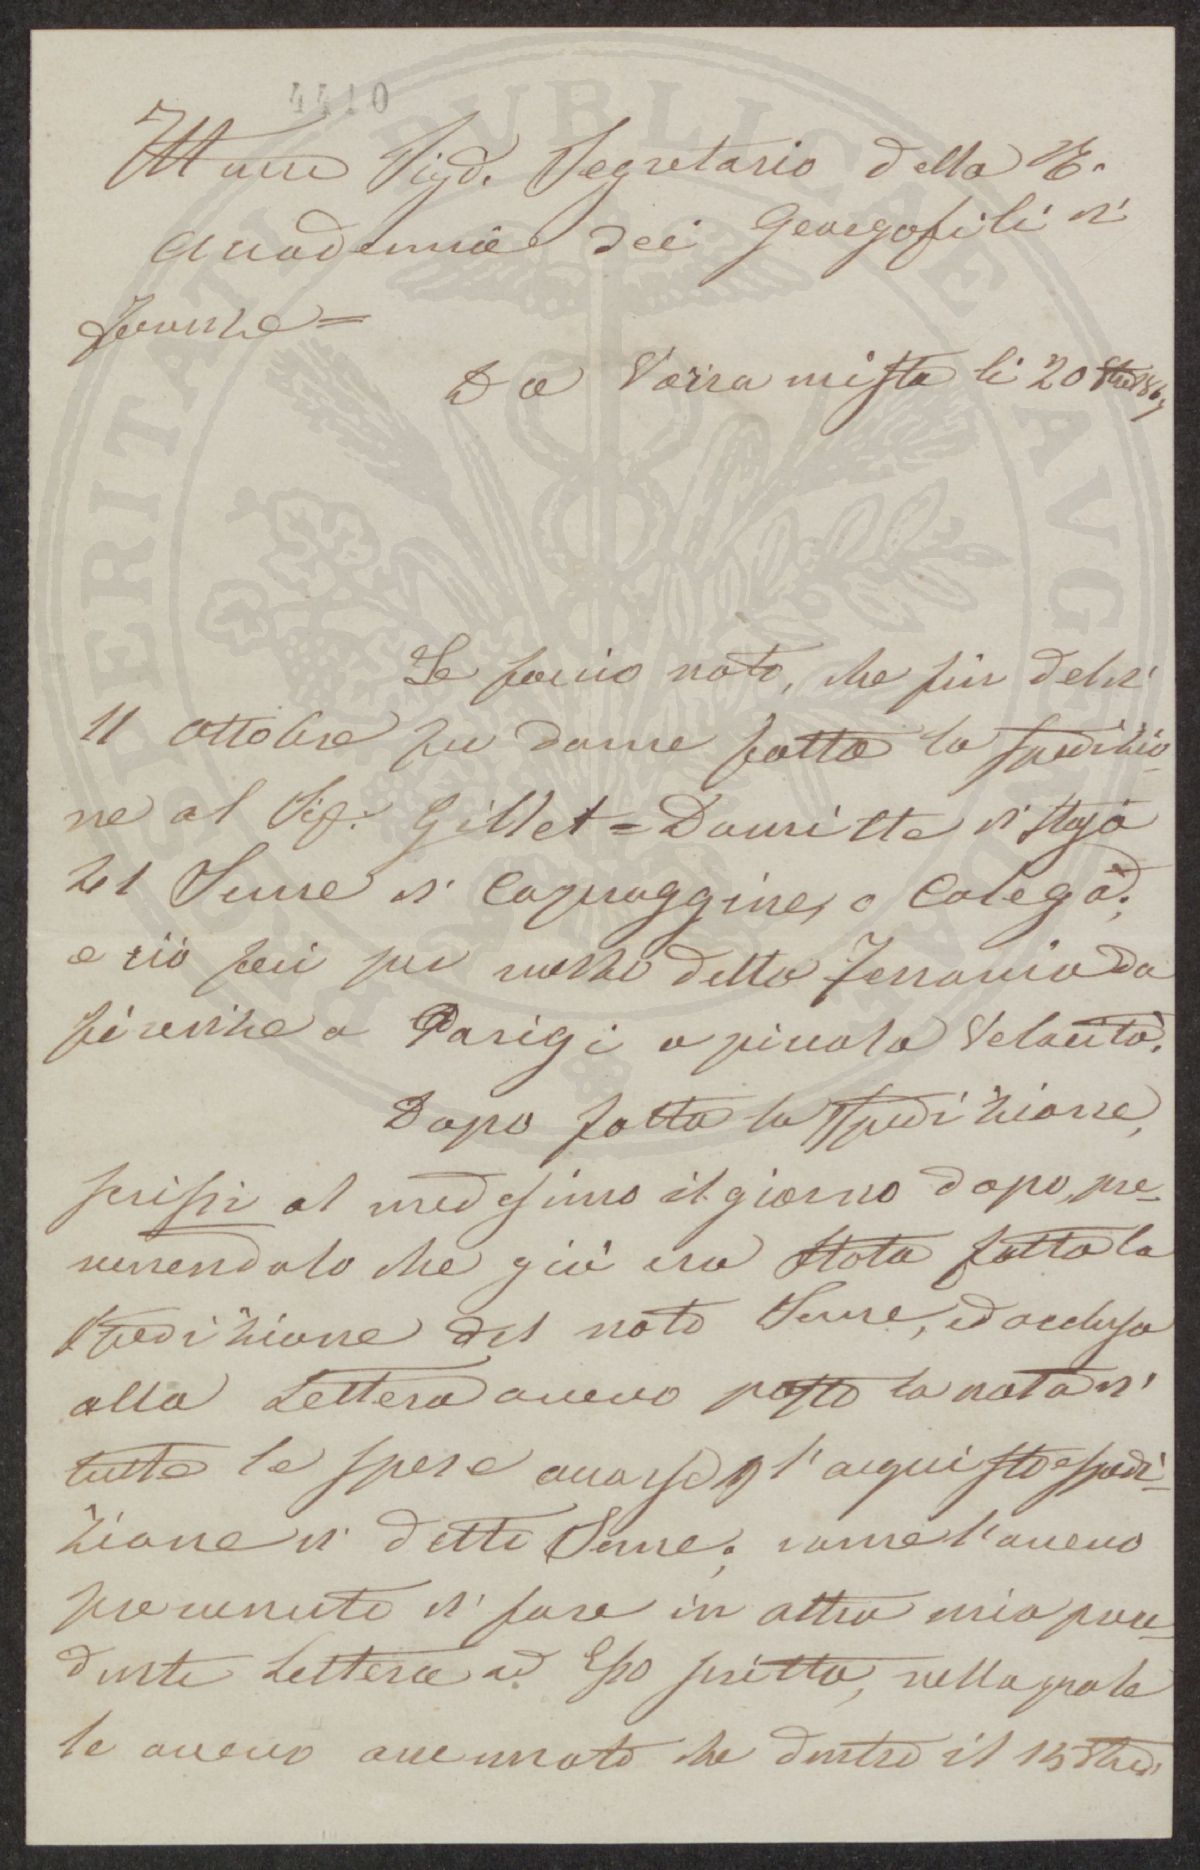 4410
Ill.mo Sig.r Segretario della R.
Accademia dei Georgofili di
Firenze =
Da Varramista li 20 8bre 1867
Le faccio noto, che fin del dì
11 Ottobre fu da me fatta la spedizio
ne al Sig.r Gillet = Damitte di Staja
del Seme di Capraggine, o Calega;
e ciò feci per mezzo della Ferrovia da
Firenze a Parigi a piccola Velocità.
Dopo fatta la spedizione,
scrissi al medesimo il giorno dopo, pre-
venendolo che già era stata fatta la
spedizione del noto Seme, ed accluso
alla Lettera avevo posto la nota di
tutte le spese occorse p l'acquisto e spedi-
zione di detto Seme; come l'avevo
prevenuto di fare in altra mia prece-
dente Lettera ad Esso scritta, nella quale
le avevo accennato che dentro il 15 8bre
SPERITATI PVBLICAE AVG